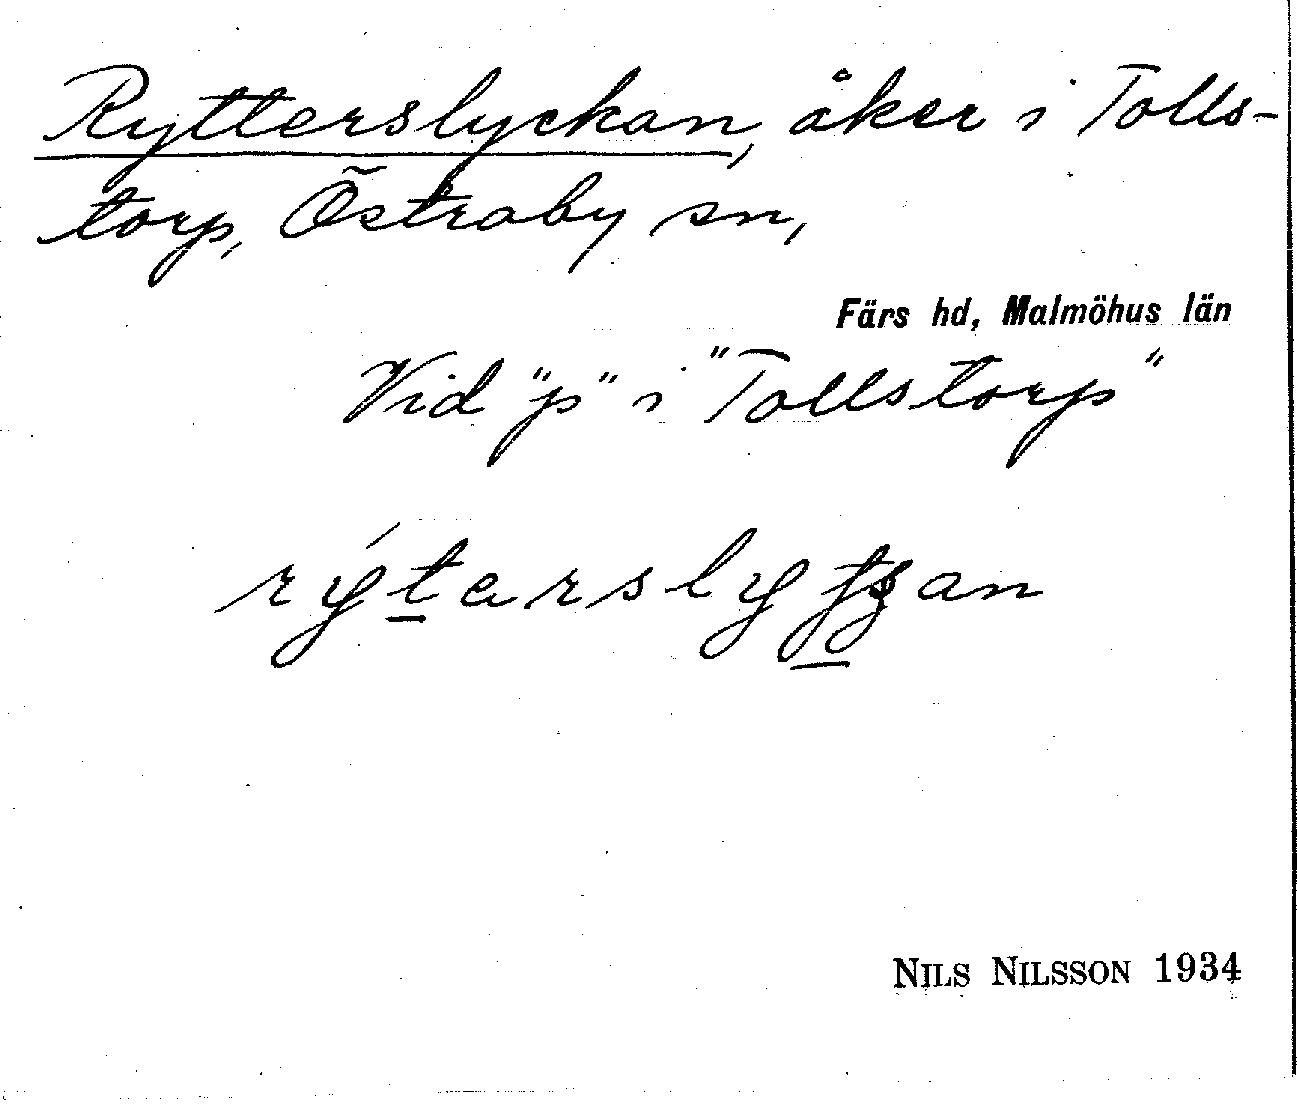 Rytterslyckan, åker i Tolls-
torp, Östraby sn,
Färs hd, Malmöhus län
Vid "p" i "Tollstorp"
NILS NILSSON 1934